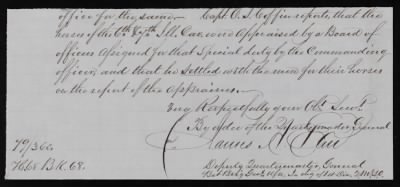 office for the same. Capt. O. S. Coffin reports, that the
horses of the 6th & 7th Ill. Cav. were Appraised by a Board of
officers Assigned for that Special duty by the Commanding
officer, and that he settled with the men for their horses
on the report of the Appraisers.
Very Respectfully your Obt. Servt.
By order of the Quartermaster General
James A. Ekin
79/360.
7668 B.K. 68.
Deputy Quartermaster General